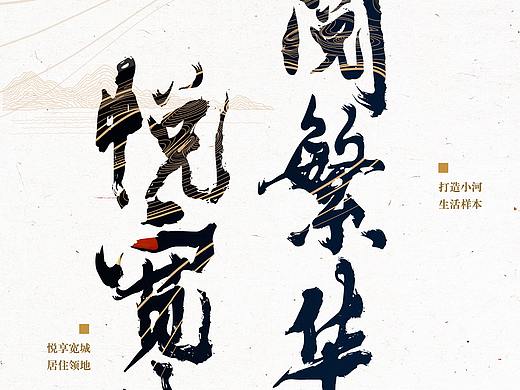 繁华
悦宽
打造小河
生活样本
悦享宽城
居住领地